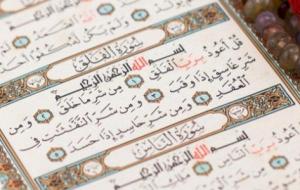 وَلَمْ يَكُن لَّهُ كُفُوًا
سُورَةُ الْفَلَقِ
بِسْمِ اللَّهِ الرَّحْمَٰنِ الرَّحِيمِ
قُلْ أَعُوذُ بِرَبِّ الْفَلَقِ ١ مِن شَرِّ مَا خَلَقَ ٢ وَمِن
شَرِّ غَاسِقٍ إِذَا وَقَبَ ٣ وَمِن شَرِّ النَّفَّاثَاتِ فِي
الْعُقَدِ ٤ وَمِن شَرِّ حَاسِدٍ إِذَا حَسَدَ ٥
سُورَةُ النَّاسِ
بِسْمِ اللَّهِ الرَّحْمَٰنِ الرَّحِيمِ
بِرَبِّ النَّاسِ